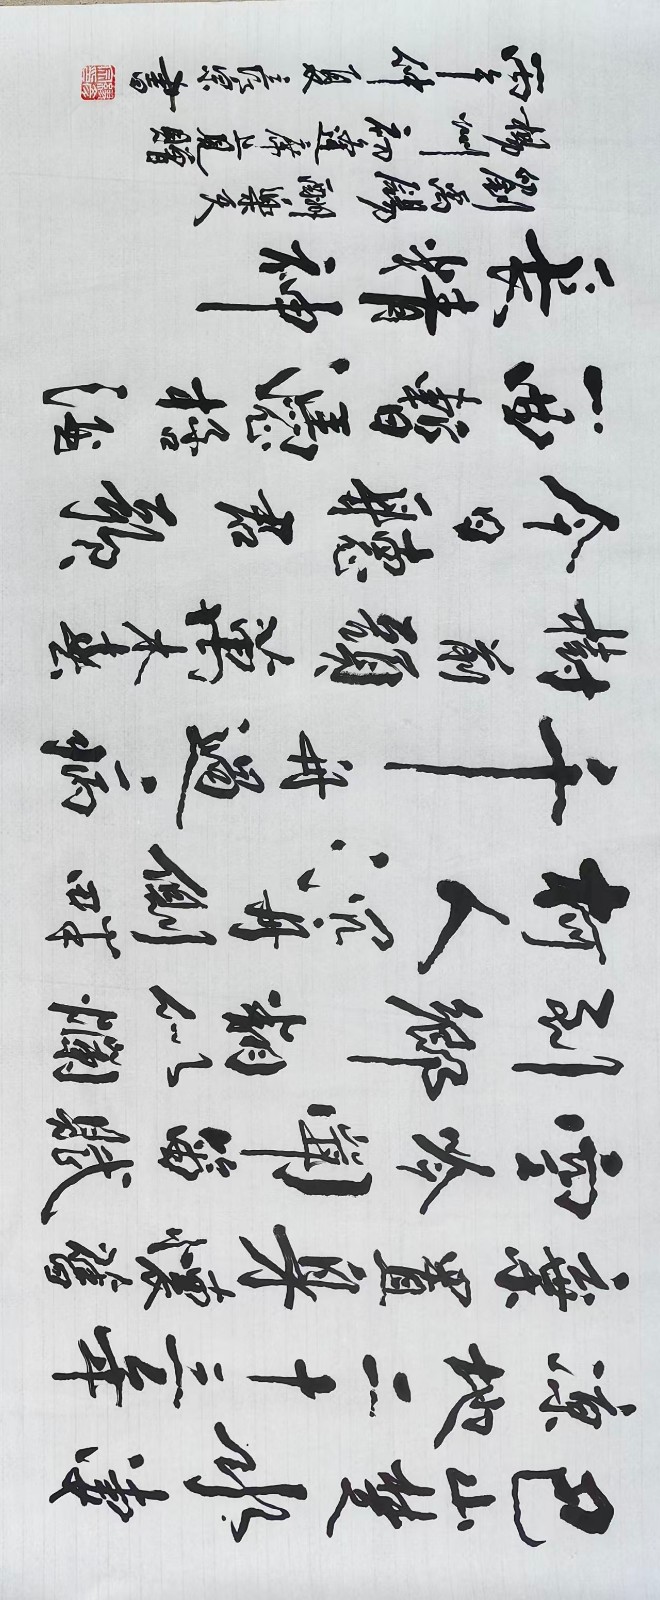 巴山楚水凄
涼地二十三年
棄置身懷舊
空吟聞笛賦
到鄉翻似爛
柯人沉舟側畔
千帆過病
樹前頭萬木春
今日聽君歌
一曲暫憑杯酒
長精神
劉禹錫酬樂天
揚州初逢席上見贈
丙午仲夏書